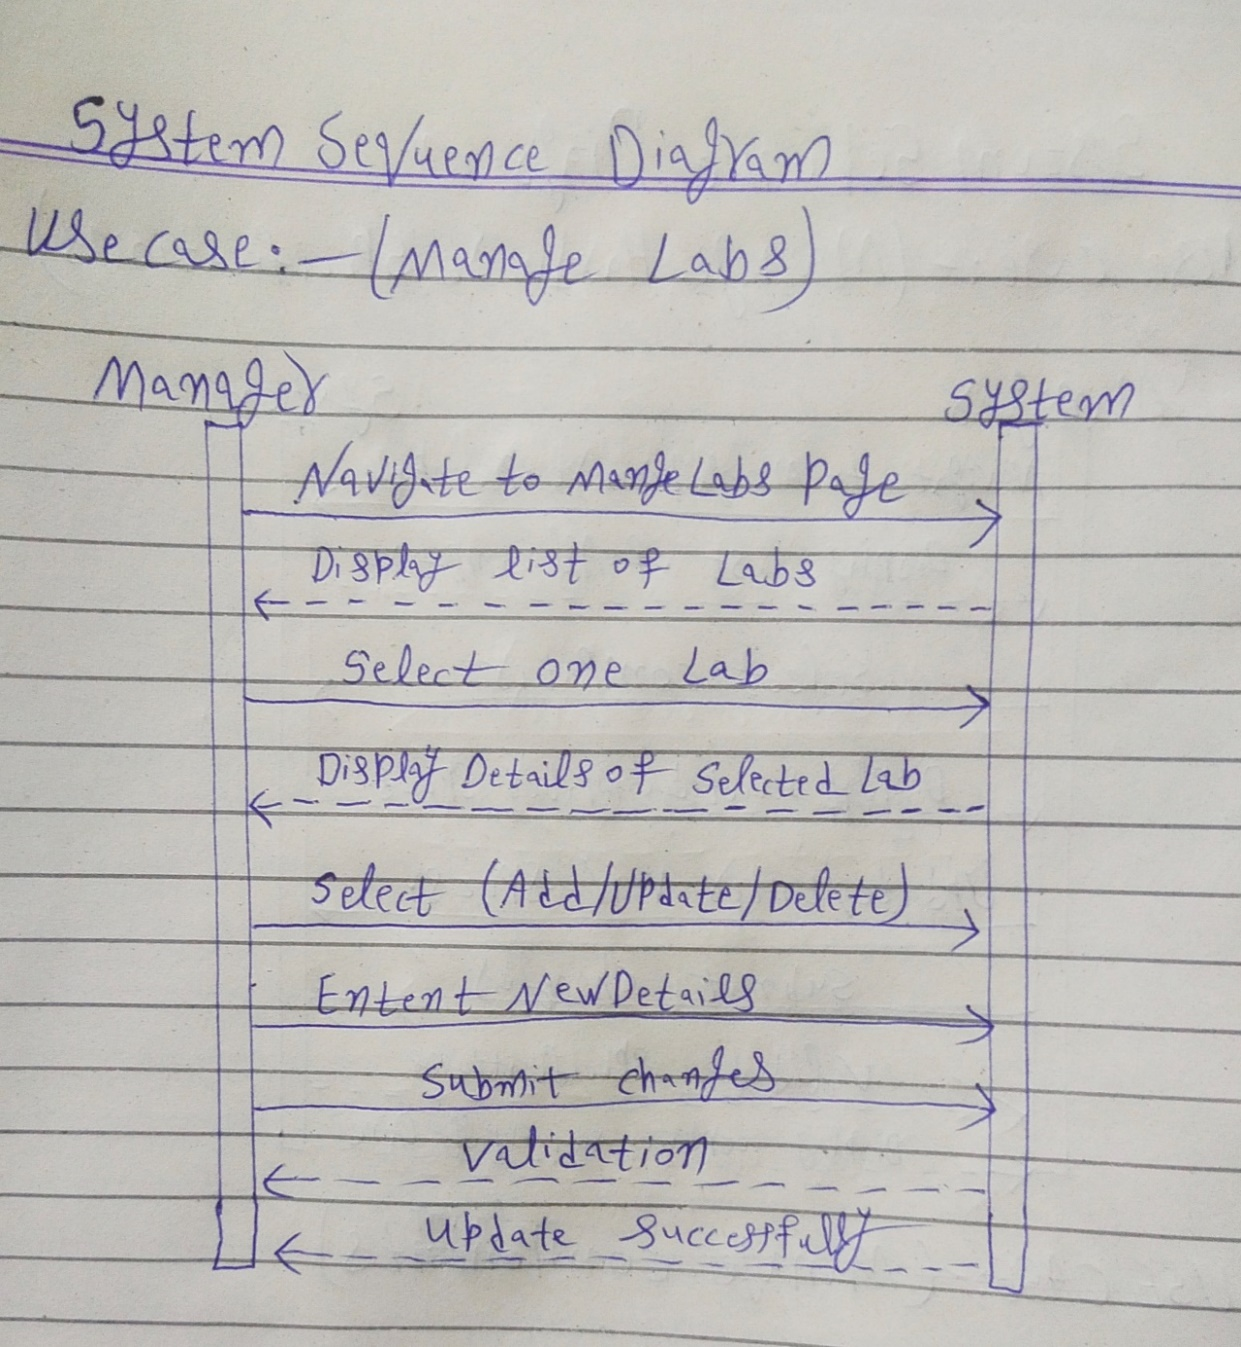 System Sequence Diagram
Use case:-(Manage Labs)
Manager System
Navigate to Mange Labs Page
Display list of Labs
Select one Lab
Display Details of Selected Lab
Select (Add/Update/Delete)
Entent New Details
Submit changes
Validation
Update Successfully